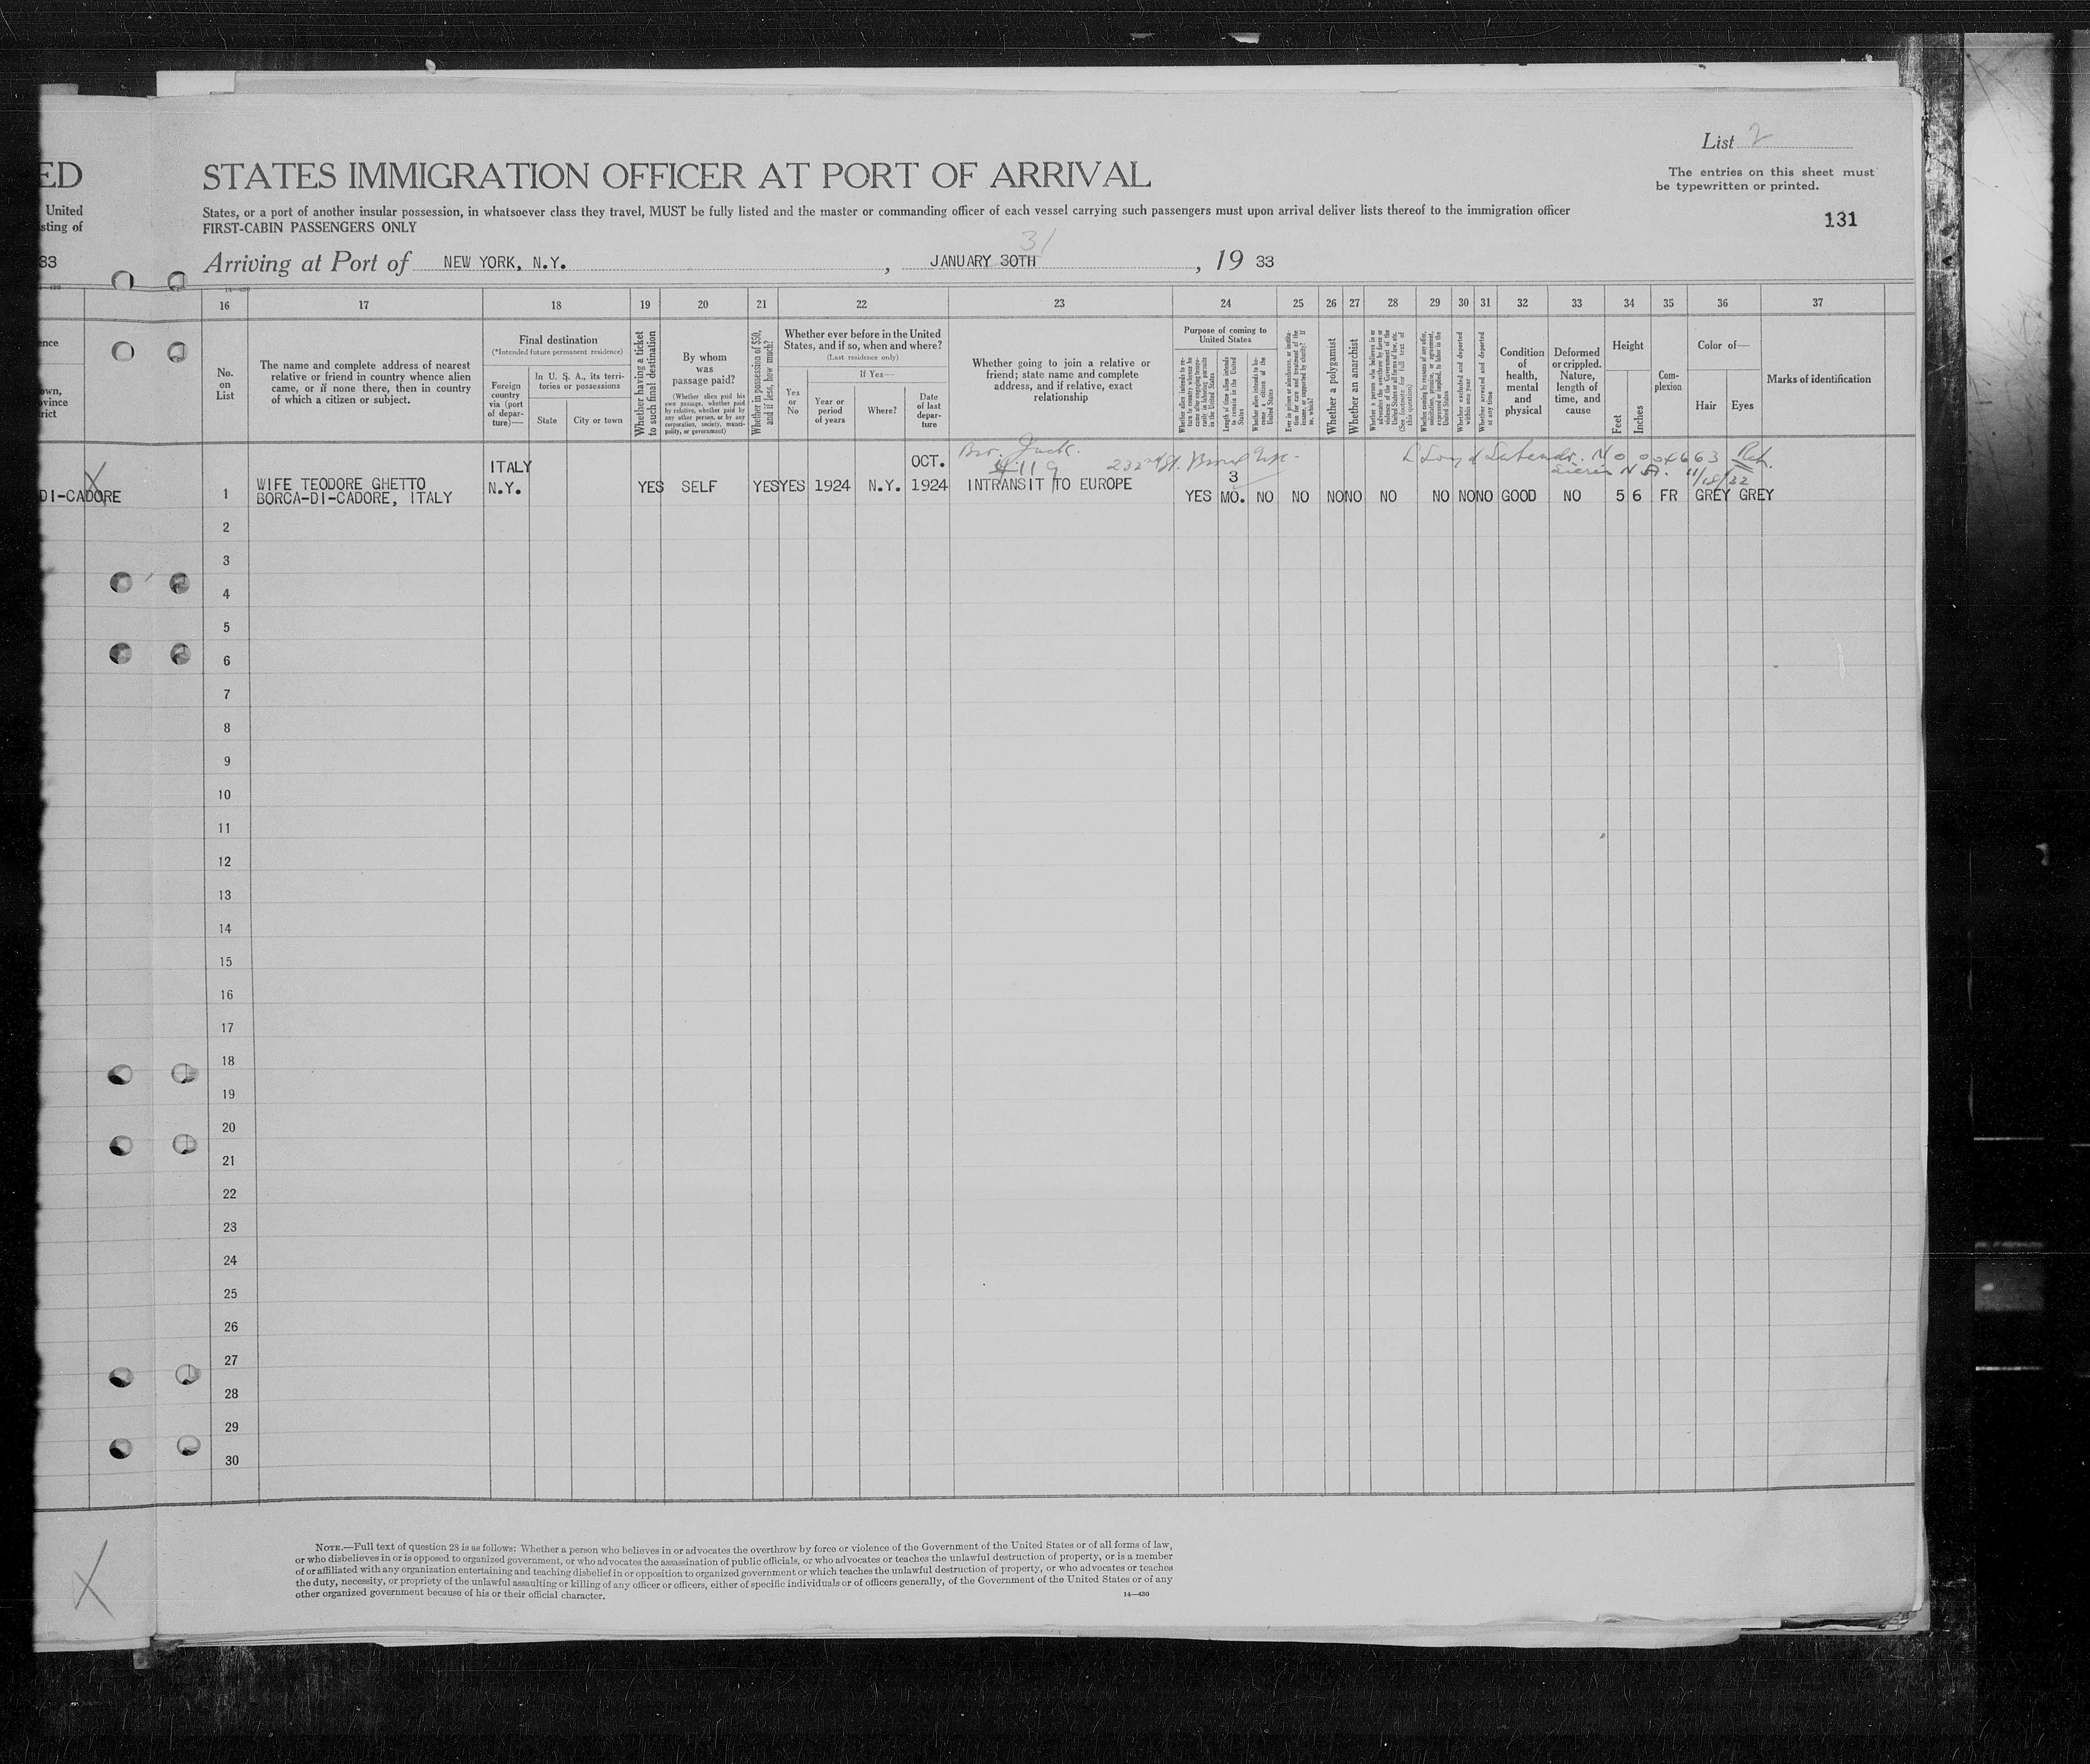 List 2
The entries on this sheet must
be typewritten or printed.
131
ED
STATES IMMIGRATION OFFICER AT PORT OF ARRIVAL
United
States, or a port of another insular possession, in whatsoever class they travel, MUST be fully listed and the master or commanding officer of each vessel carrying such passengers must upon arrival deliver lists thereof to the immigration officer
sting of
FIRST-CABIN PASSENGERS ONLY
31
33
Arriving at Port of NEW YORK, N.Y. , JANUARY 30TH , 19 33
16 17 18 19 20 21 22 23 24 25 26 27 28 29 30 31 32 33 34 35 36 37
No.
on
List
The name and complete address of nearest
relative or friend in country whence alien
came, or if none there, then in country
of which a citizen or subject.
Final destination
(*Intended future permanent residence)
Foreign
country
via (port
of depar-
ture)—
In U. S. A., its terri-
tories or possessions
State
City or town
Whether having a ticket
to such final destination
By whom
was
passage paid?
(Whether alien paid his
own passage, whether paid
by relative, whether paid by
any other person, or by any
corporation, society, munici-
pality, or government)
Whether in possession of $50,
and if less, how much?
Whether ever before in the United
States, and if so, when and where?
(Last residence only)
Yes
or
No
If Yes—
Year or
period
of years
Where?
Date
of last
depar-
ture
Whether going to join a relative or
friend; state name and complete
address, and if relative, exact
relationship
Purpose of coming to
United States
Length of time alien intends
to remain in the United
States
Whether alien intends to be-
come a citizen of the
United States
Whether a polygamist
Whether an anarchist
Whether arrested and deported
at any time
Condition
of
health,
mental
and
physical
Deformed
or crippled.
Nature,
length of
time, and
cause
Height
Feet
Inches
Com-
plexion
Color of—
Hair
Eyes
Marks of identification
Bro. Jack.
4119 232nd St.
No 004663
11/18/32
DI-CADORE
1 WIFE TEODORE GHETTO
BORCA-DI-CADORE, ITALY
ITALY
N.Y.
YES SELF YES YES 1924 N.Y. OCT.
1924
INTRANSIT TO EUROPE
YES 3
MO. NO NO NO NO NO NO NO NO GOOD NO 5 6 FR GREY GREY
2
3
4
5
6
7
8
9
10
11
12
13
14
15
16
17
18
19
20
21
22
23
24
25
26
27
28
29
30
NOTE.—Full text of question 28 is as follows: Whether a person who believes in or advocates the overthrow by force or violence of the Government of the United States or of all forms of law,
or who disbelieves in or is opposed to organized government, or who advocates the assassination of public officials, or who advocates or teaches the unlawful destruction of property, or is a member
of or affiliated with any organization entertaining and teaching disbelief in or opposition to organized government or which teaches the unlawful destruction of property, or who advocates or teaches
the duty, necessity, or propriety of the unlawful assaulting or killing of any officer or officers, either of specific individuals or of officers generally, of the Government of the United States or of any
other organized government because of his or their official character.
14—430